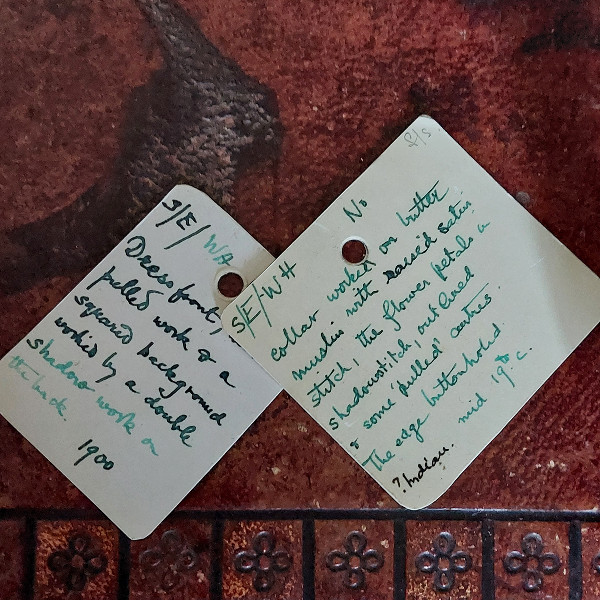 S/E/WH
Dress front,
pulled work on a
squared background
worked by a double
shadow work on
the back.
1900
S/S
No
S/E/-WH
collar worked on butter
muslin with raised satin
stitch, the flower petals in
shadowstitch, outlined
& some 'pulled' centres.
The edge buttonholed.
mid 19th c.
? Indian.